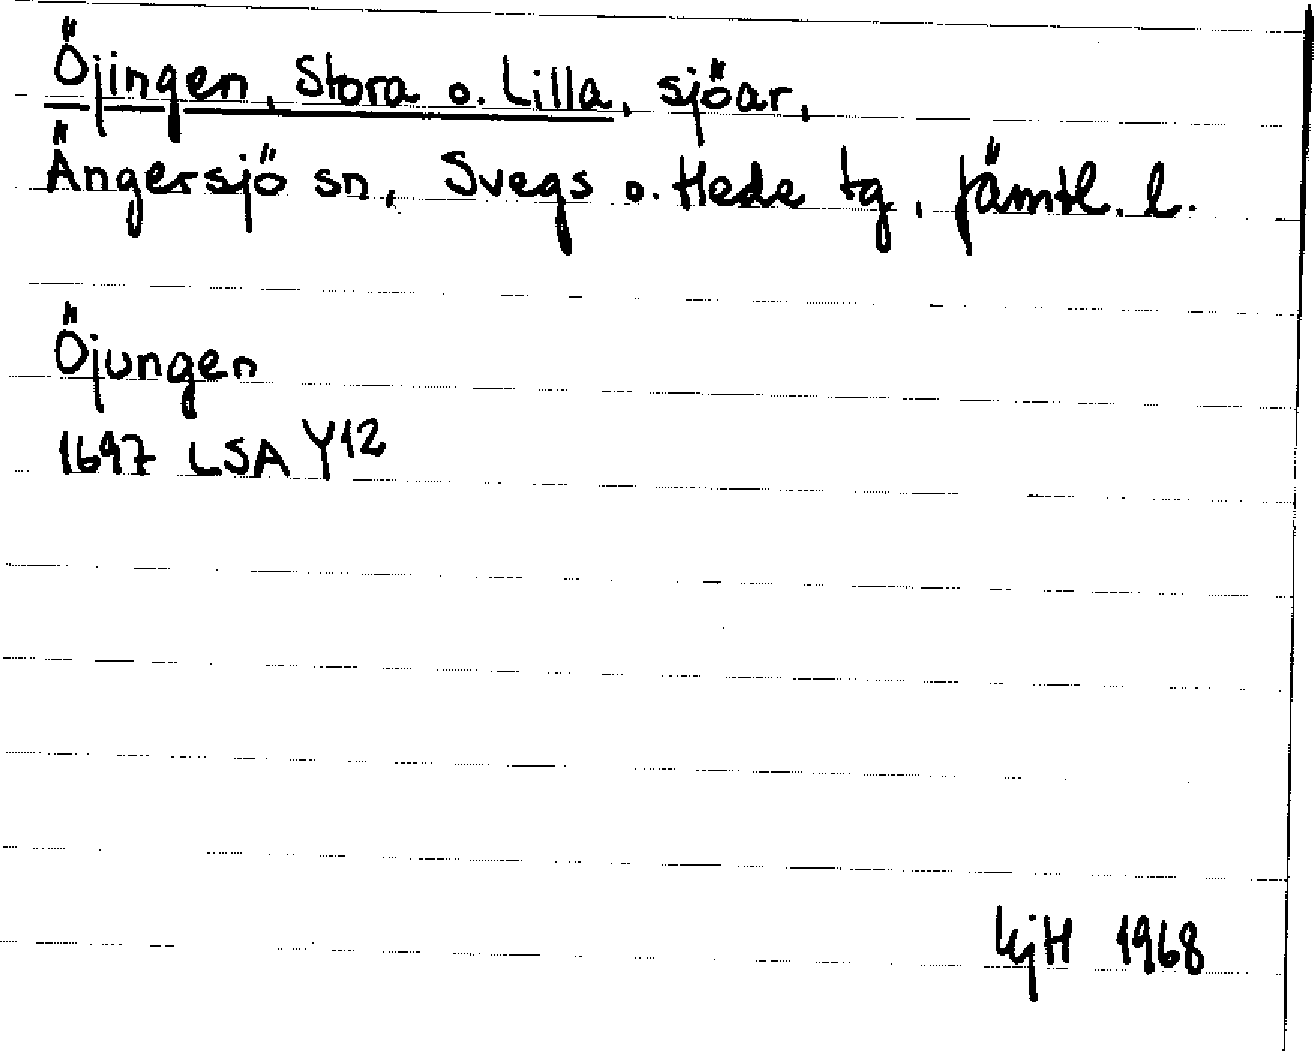 Öjingen, Stora o. Lilla, sjöar,
Ängersjö sn, Svegs o. Hede tg, Jämtl. l.
Öjungen
1697 LSA Y12
KjH 1968